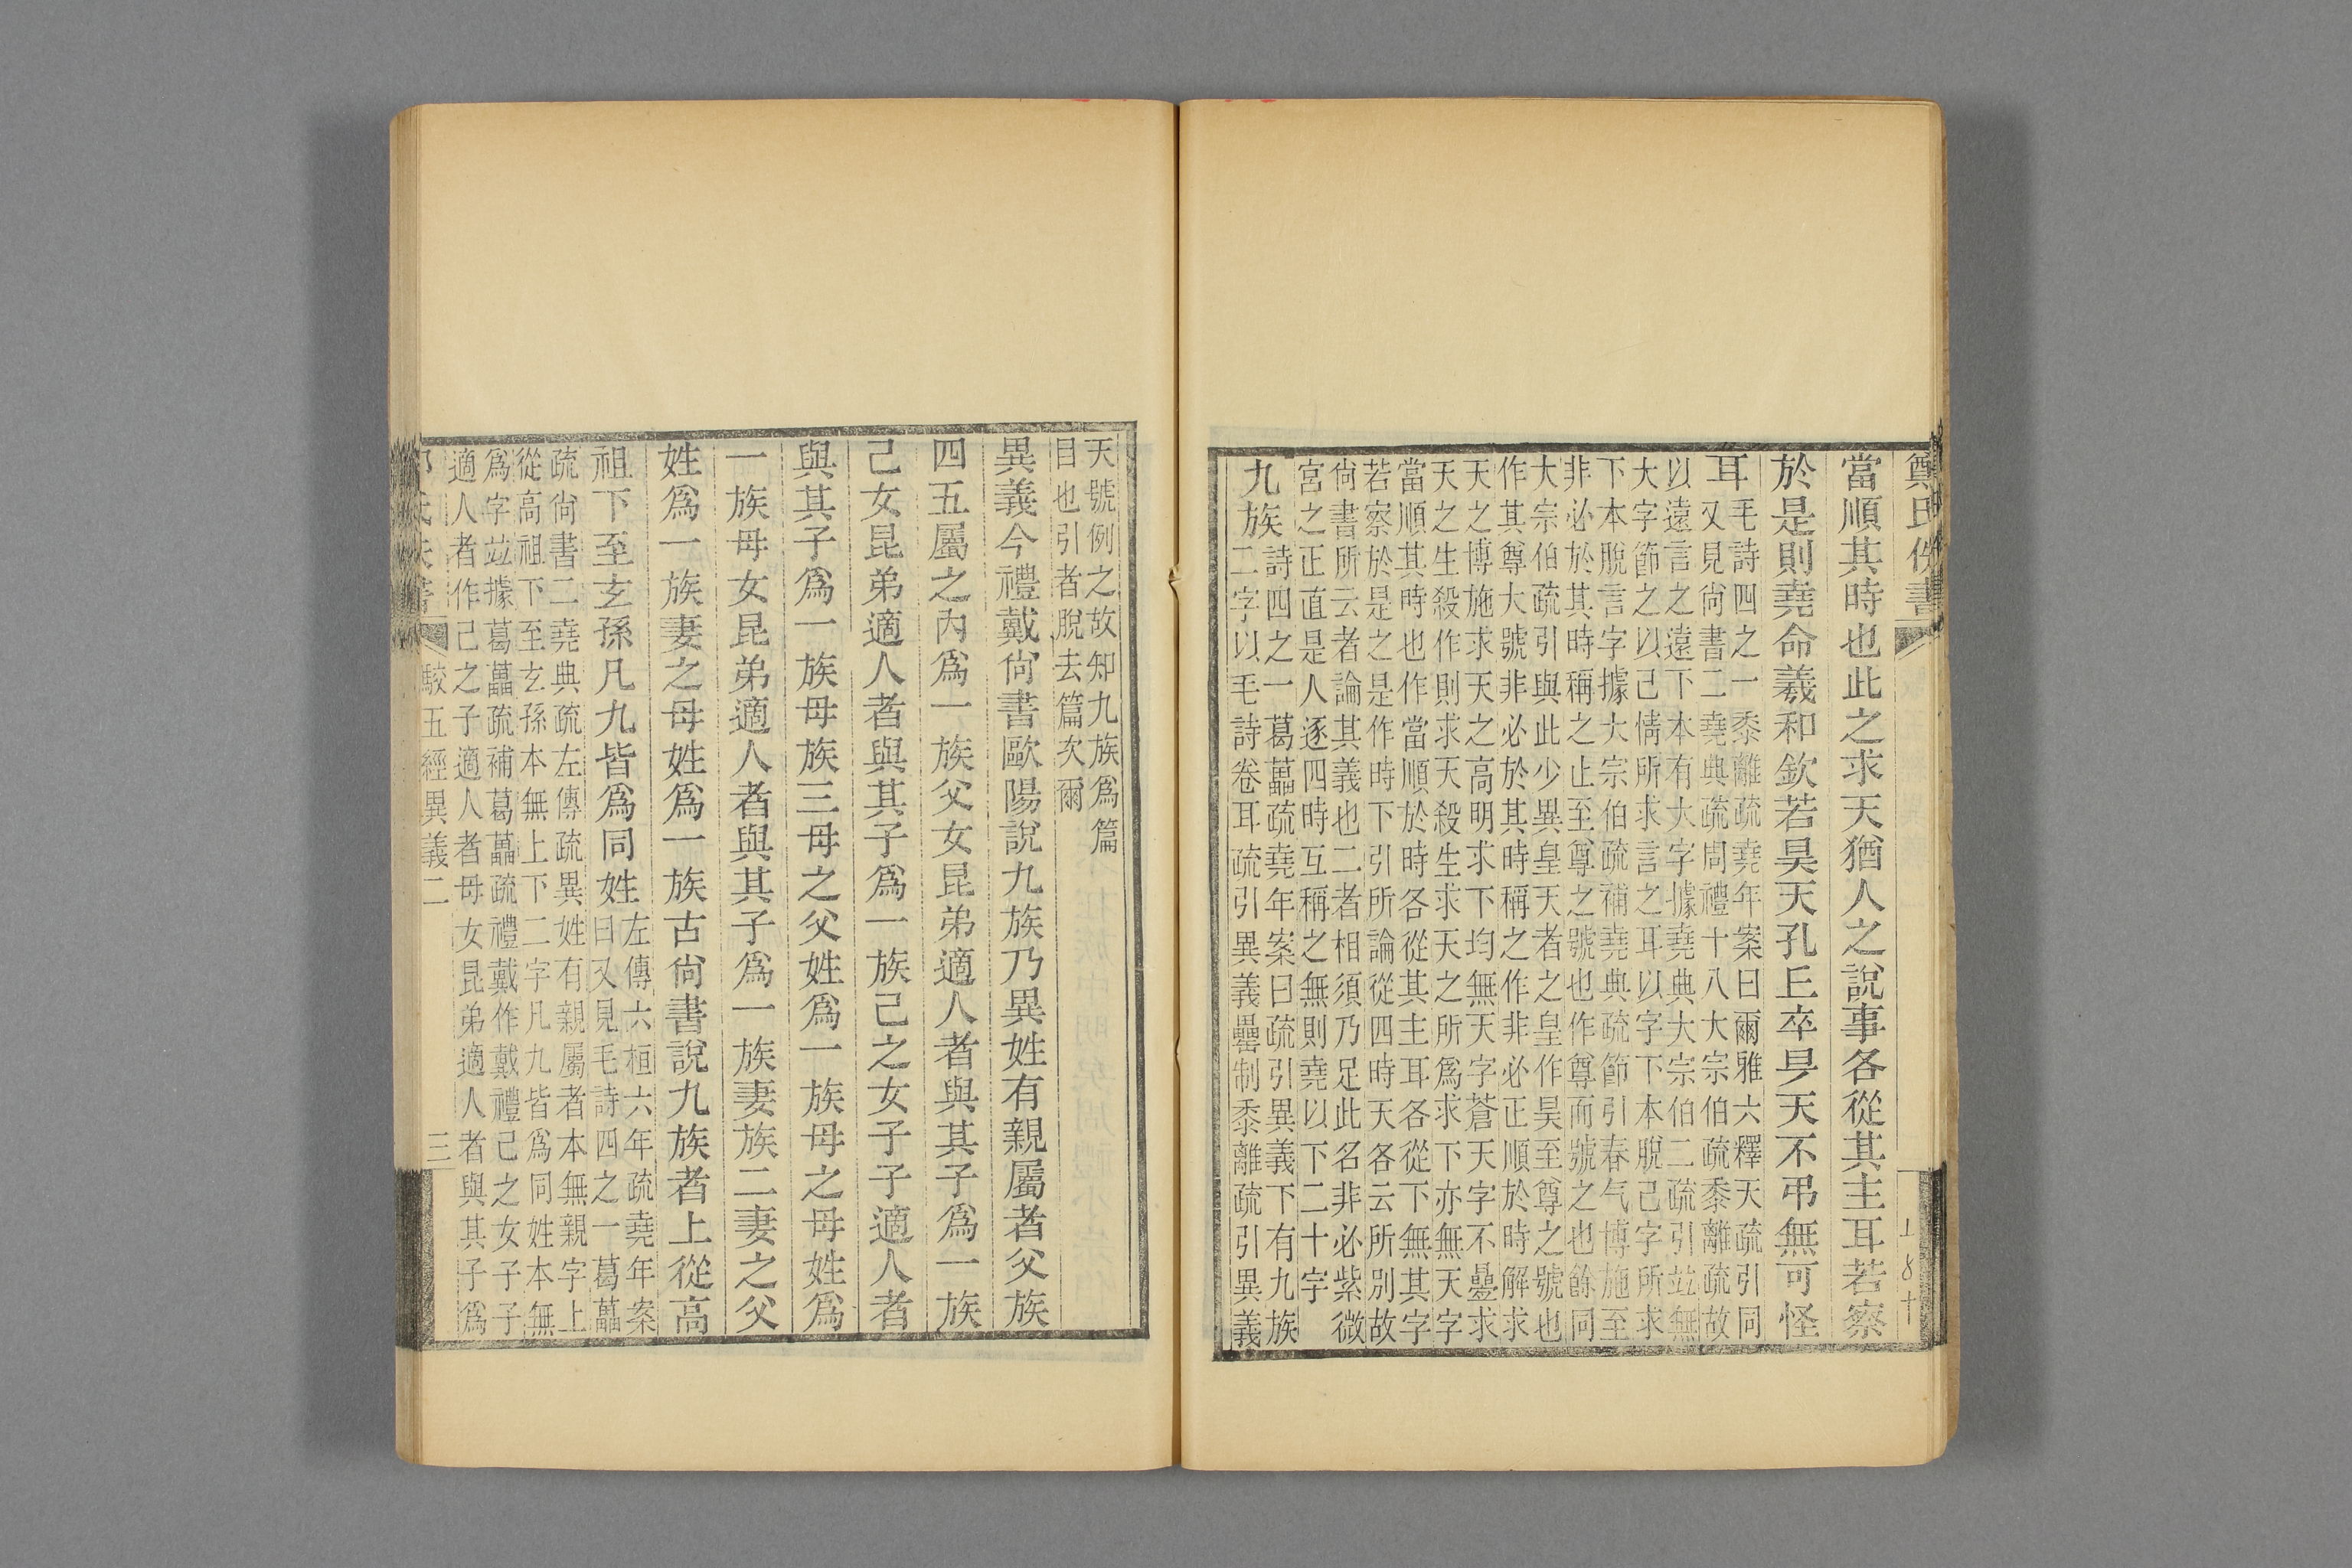 鄭氏佚書
當順其時也此之求天猶人之說事各從其主耳若察
於是則堯命羲和欽若昊天孔丘卒旻天不弔無可怪
耳
毛詩四之一黍離疏堯年案曰爾雅六釋天疏引同
又見尙書二堯典疏周禮十八大宗伯疏黍離疏故
以遠言之遠下本有大字據堯典大宗伯二疏引竝無
大字節之以己情所求言之耳以字下本脫己字所求
下本脫言字據大宗伯疏補堯典疏節引春气博施至
非必於其時稱之止至尊之號也作尊而號之也餘同
大宗伯疏引與此少異皇天者之皇作昊至尊之號也
作其尊大號非必於其時稱之作非必正順於時解求
天之博施求天之高明求下均無天字蒼天字不曡求
天之生殺作則求天殺生求天之所爲求下亦無天字
當順其時也作當順於時各從其主耳各從下無其字
若察於是之是作時下引所論從四時天各云所別故
尙書所云者論其義也二者相須乃足此名非必紫微
宮之正直是人逐四時互稱之無則堯以下二十字
九族
詩四之一葛藟疏堯年案曰疏引異義下有九族
二字以毛詩卷耳疏引異義罍制黍離疏引異義
天號例之故知九族爲篇
目也引者脫去篇次爾
異義今禮戴尙書歐陽說九族乃異姓有親屬者父族
四五屬之內爲一族父女昆弟適人者與其子爲一族
己女昆弟適人者與其子爲一族己之女子子適人者
與其子爲一族母族三母之父姓爲一族母之母姓爲
一族母女昆弟適人者與其子爲一族妻族二妻之父
姓爲一族妻之母姓爲一族古尙書說九族者上從高
祖下至玄孫凡九皆爲同姓
左傳六桓六年疏堯年案
曰又見毛詩四之一葛藟
疏尙書二堯典疏左傳疏異姓有親屬者本無親字上
從高祖下至玄孫本無上下二字凡九皆爲同姓本無
爲字竝據葛藟疏補葛藟疏禮戴作戴禮己之女子子
適人者作己之子適人者母女昆弟適人者與其子爲
駁五經異義二
三